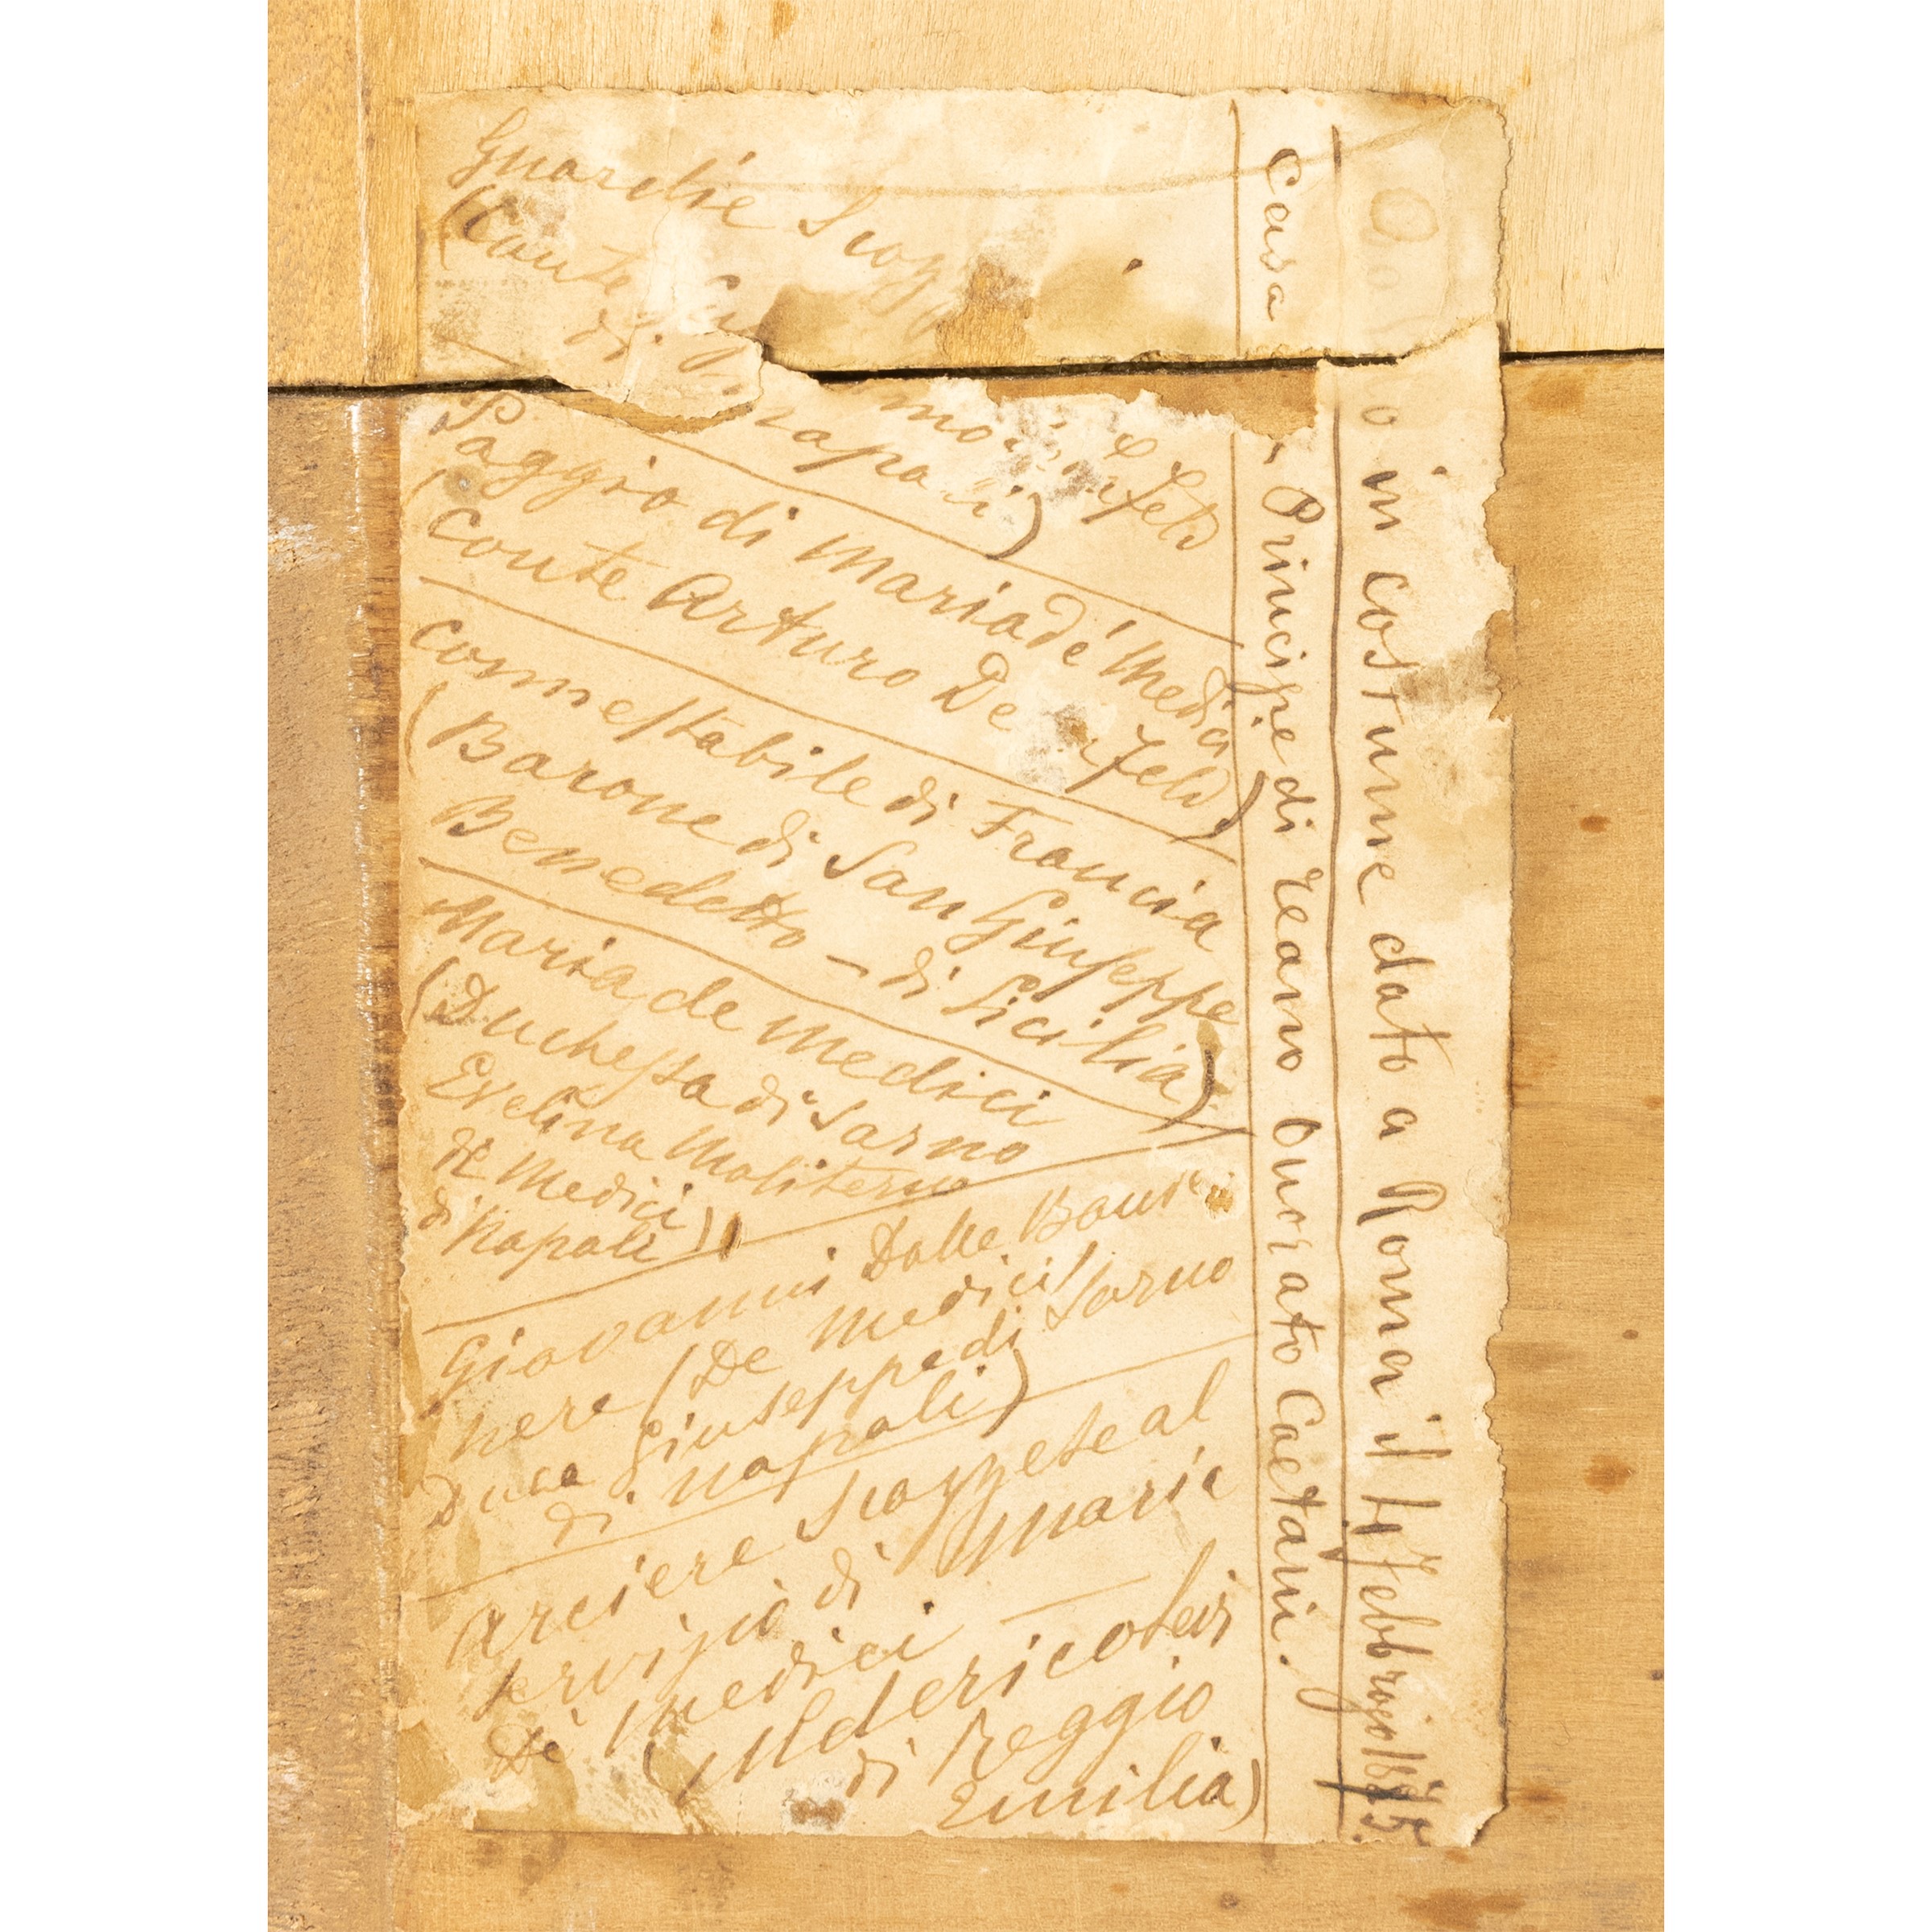 in costume dato a Roma il Febbrajo 1875.
Casa Principe di Teano Onorato Caetani.
Guardie
(Conte
di Napoli)
Paggio di Maria dé Medici
Conte Arturo De
Connestabile di Francia
(Barone di San Giuseppe
Benedetto – di Sicilia)
Maria de Medici
(Duchessa di Sarno
Evelina Moliterno
de Medici
di Napoli)
Giovanni Dalle Bande
nere (De Medici
Duca Giuseppe di Sarno
di Napoli)
Arciere Scozzese al
servizio di Maria
De Medici
(Ulderico Levi
di Reggio
Emilia)